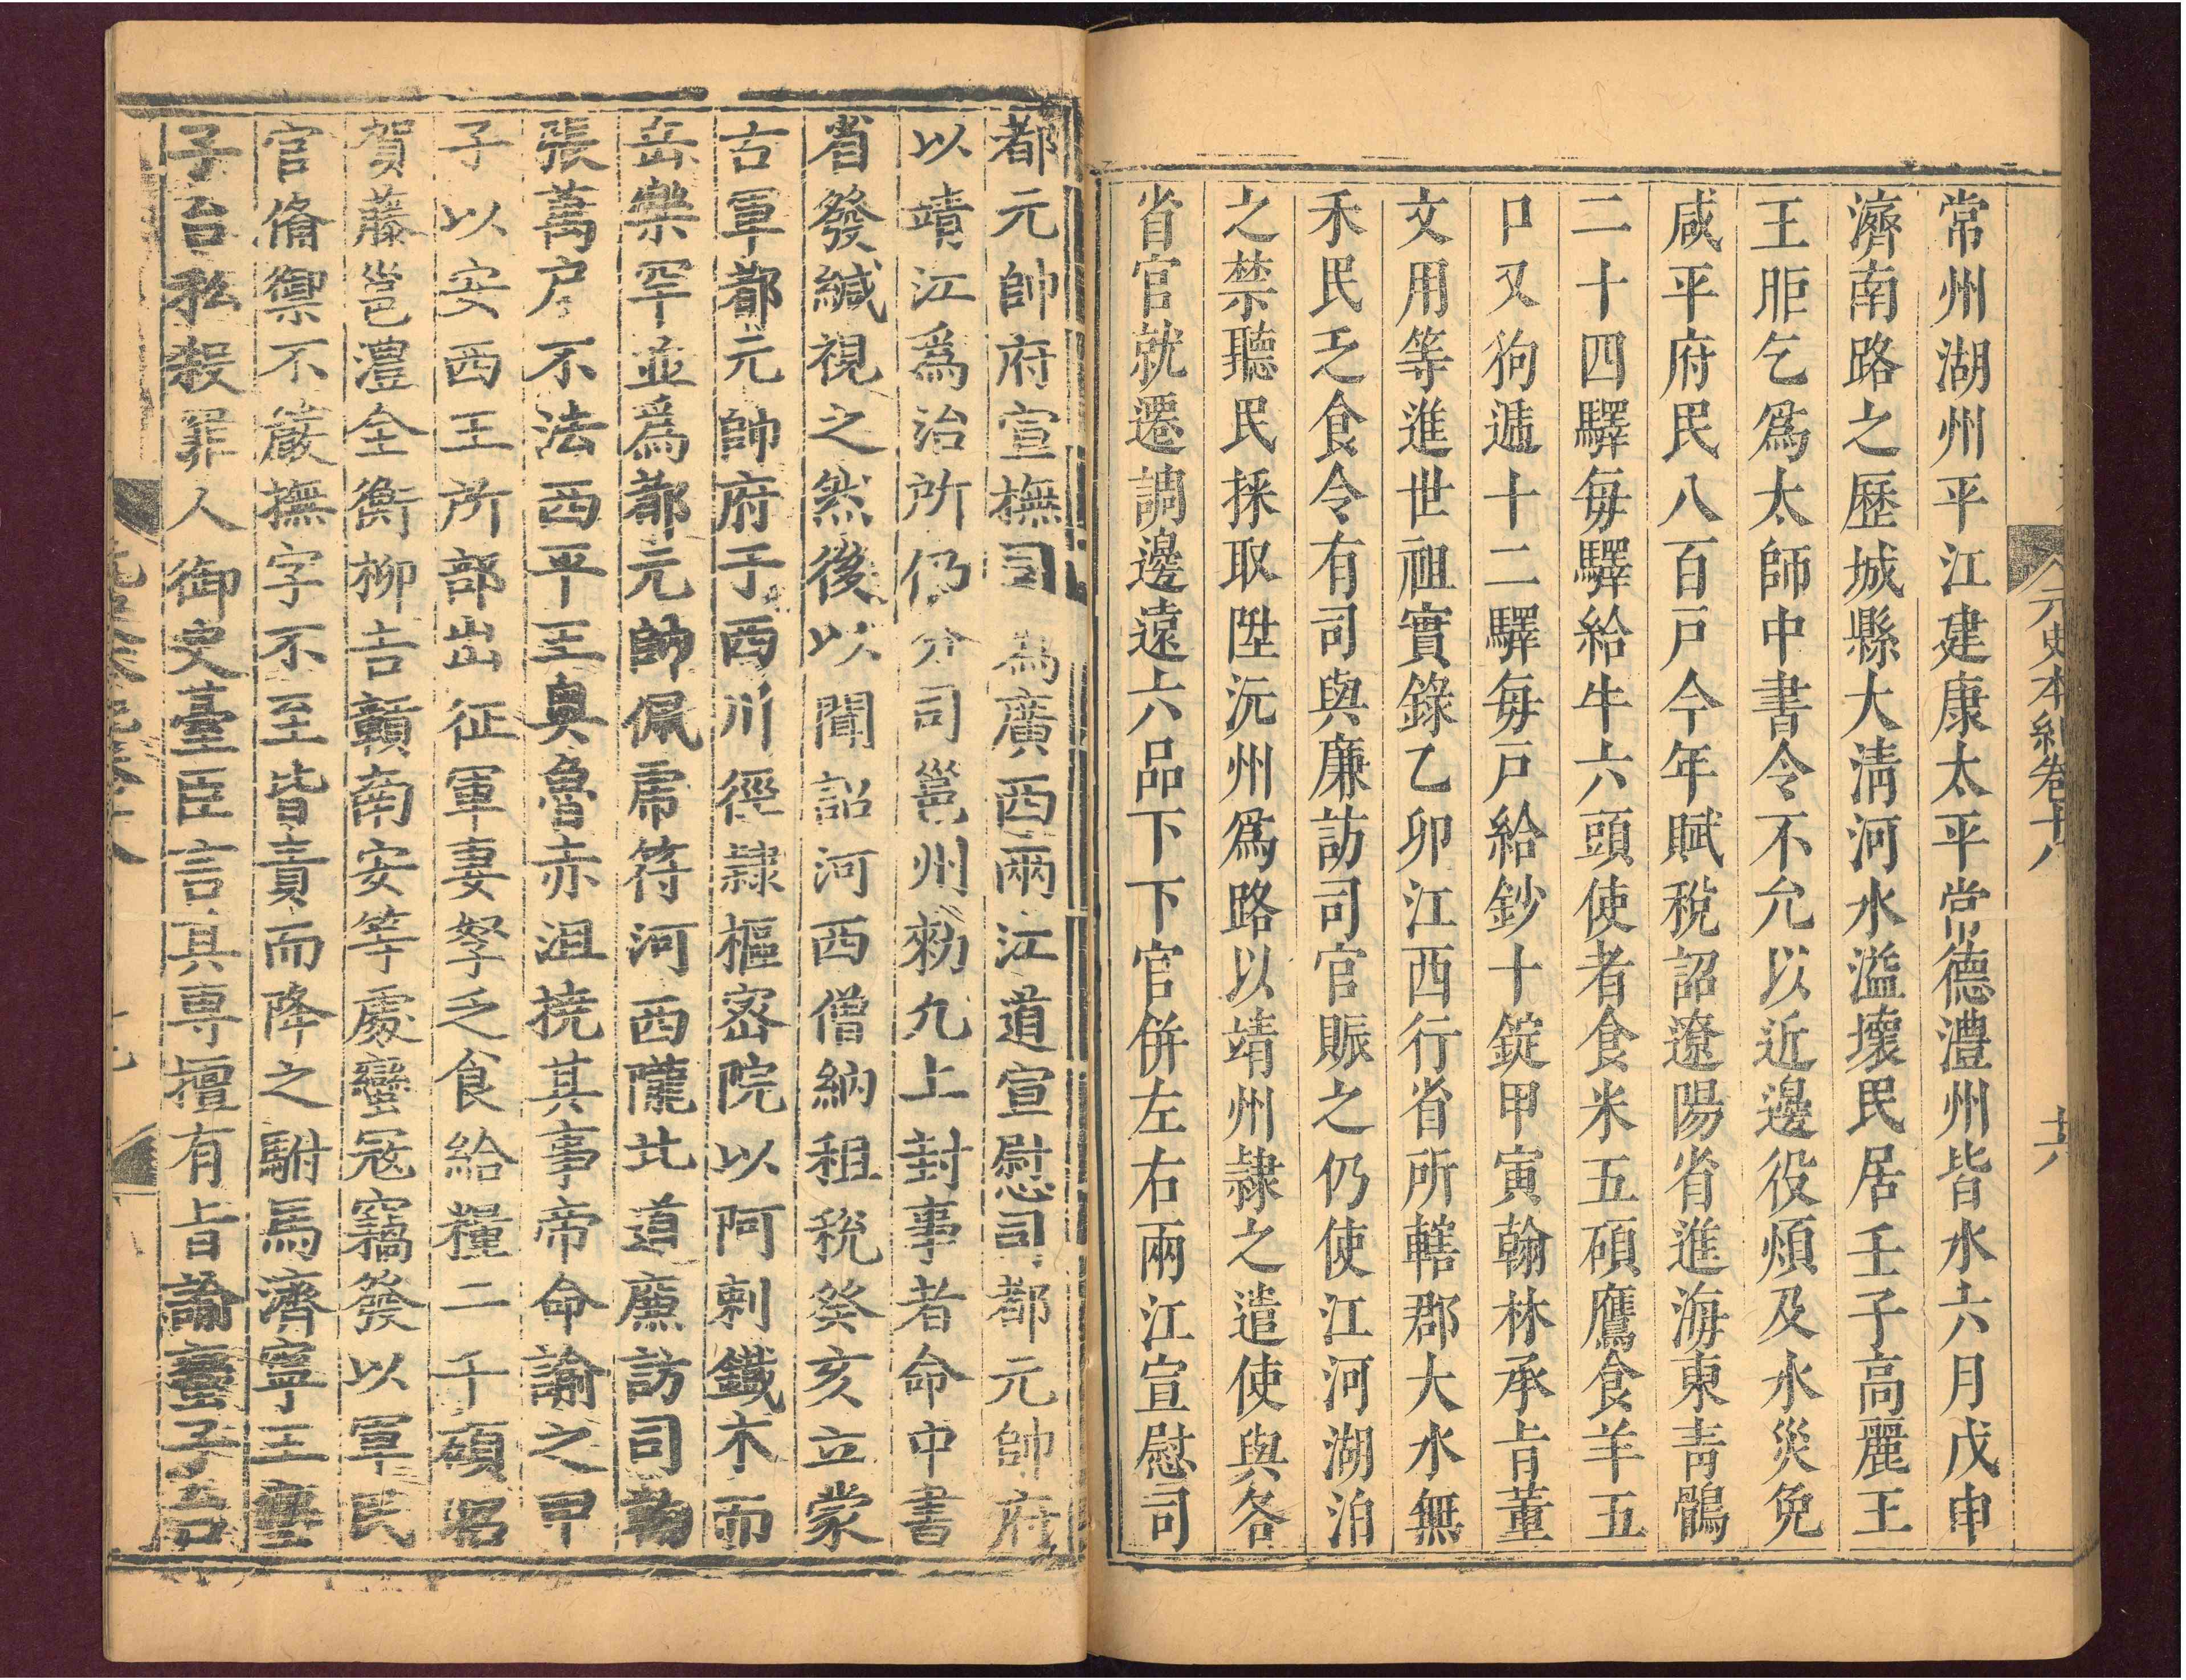 元史本紀卷十八
十八
常州湖州平江建康太平常德澧州皆水六月戊申
濟南路之歷城縣大淸河水溢壞民居壬子高麗王
王昛乞爲太師中書令不允以近邊役煩及水災免
咸平府民八百戸今年賦稅詔遼陽省進海東靑鶻
二十四驛毎驛給牛六頭使者食米五碩鷹食羊五
口又狗逓十二驛毎戸給鈔十錠甲寅翰林承㫖董
文用等進世祖實錄乙卯江西行省所轄郡大水無
禾民乏食令有司與廉訪司官賑之仍使江河湖泊
之禁聽民採取陞沅州爲路以靖州隷之遣使與各
省官就遷調邊遠六品下下官併左右兩江宣慰司
都元帥府宣撫司爲廣西兩江道宣慰司都元帥府
以靖江爲治所仍分司邕州勑九上封事者命中書
省發緘視之然後以聞詔河西僧納租稅癸亥立蒙
古軍都元帥府于西川徑隷樞密院以阿剌鐵木而
岳樂罕並爲都元帥佩虎符河西隴北道廉訪司鞫
張萬戸不法西平王奥魯赤沮撓其事帝命諭之甲
子以安西王所部出征軍妻孥乏食給糧二千碩昭
賀藤邕澧全衡柳吉贛南安等處蠻宼竊發以軍民
官備禦不嚴撫字不至皆責而降之駙馬濟寧王蠻
子台私殺罪人御史臺臣言其專擅有㫖諭蠻子台